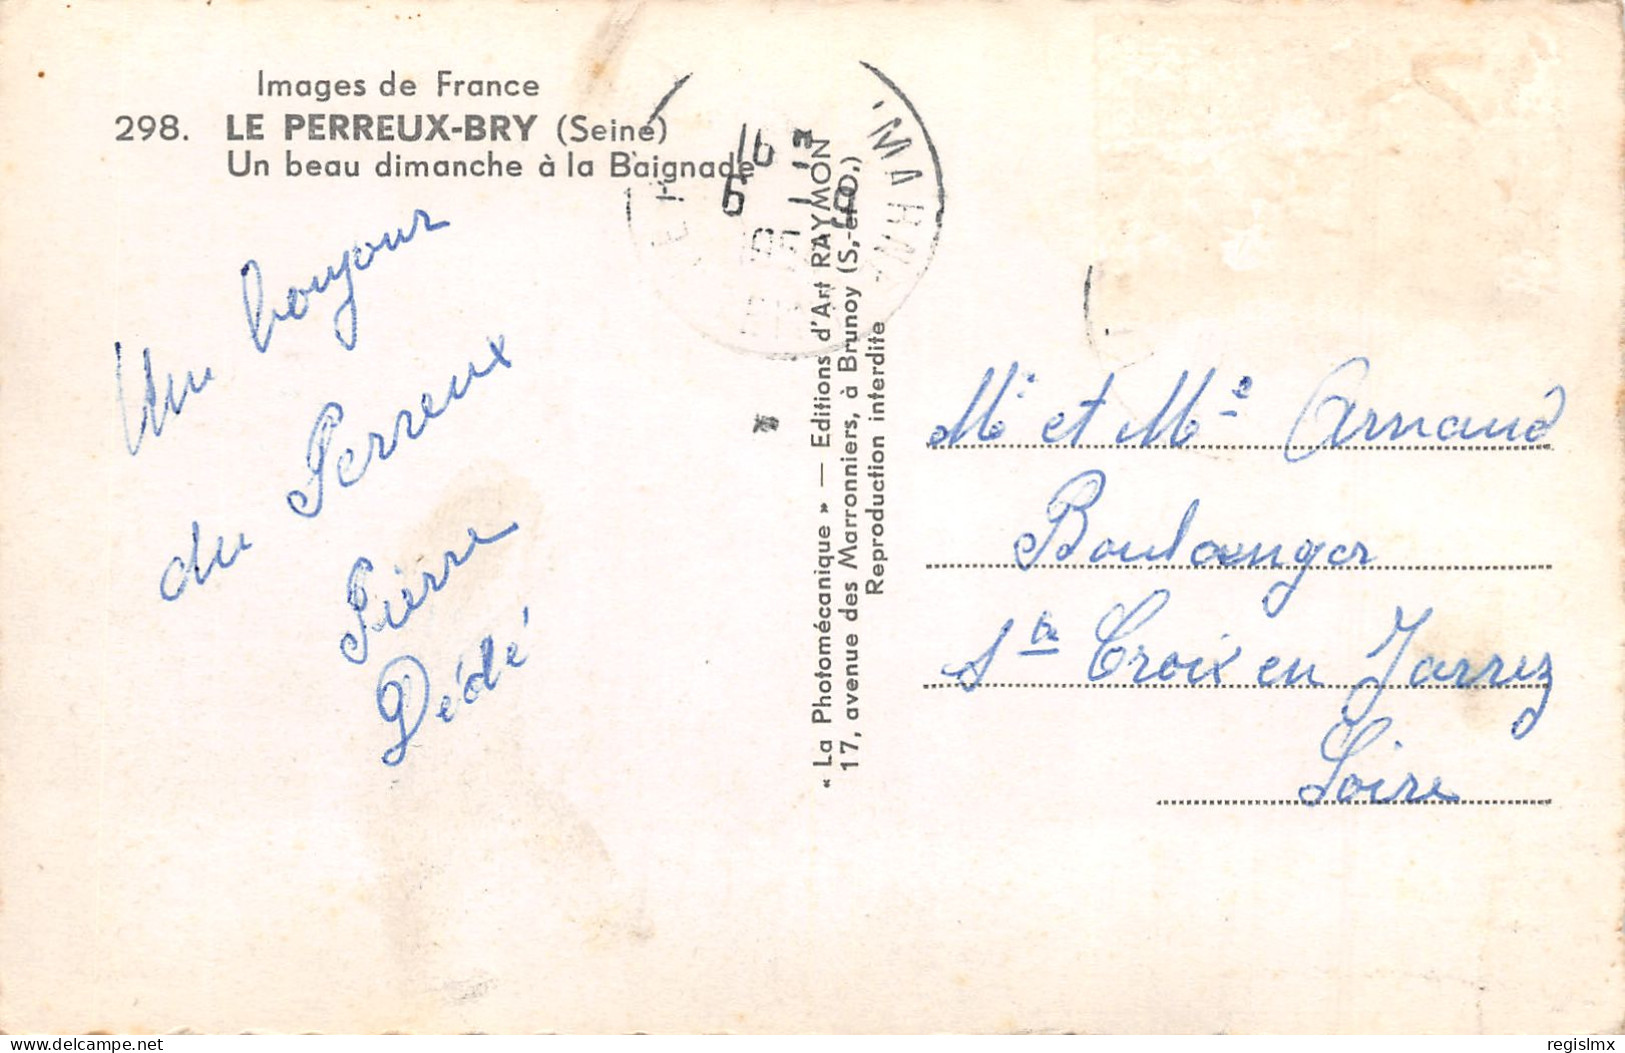 Images de France
298. LE PERREUX-BRY (Seine)
Un beau dimanche à la Baignade
Un bonjour
du Perreux
Pierre
Dédé
« La Photomécanique » — Editions d'Art RAYMON
17, avenue des Marronniers, à Brunoy (S.-et-O.)
Reproduction interdite
16
6
Mr et Me Arnaud
Boulanger
Ste Croix en Jarrez
Loire
www.delcampe.net
regislmx